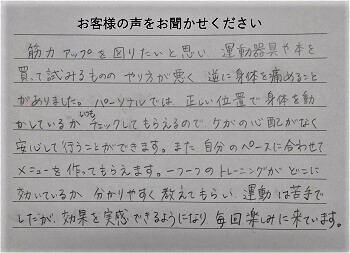 お客様の声をお聞かせください
筋力アップを図りたいと思い 運動器具や本を
買って試みるものの やり方が悪く 逆に身体を痛めること
がありました。パーソナルでは 正しい位置で身体を動
かしているか いつも チェックしてもらえるので ケガの心配がなく
安心して行うことができます。また 自分のペースに合わせて
メニューを作ってもらえます。一つ一つのトレーニングが どこに
効いているか 分かりやすく教えてもらい 運動は苦手で
したが、効果を実感できるようになり 毎回楽しみに来ています。